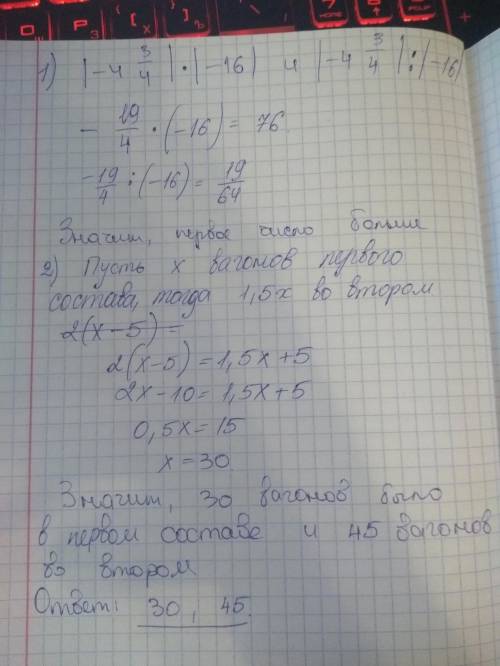 1) |-4 3/4| · |-16| и |-4 3/4| : |-16|
- 19/4 · (-16) = 76
-19/4 : (-16) = 19/64
Значит, первое число больше
2) Пусть x вагонов первого
состава, тогда 1,5x во втором
2(x-5)=
2(x-5) = 1,5x+5
2x-10 = 1,5x+5
0,5x = 15
x = 30
Значит, 30 вагонов было
в первом составе и 45 вагонов
во втором
Ответ: 30, 45.